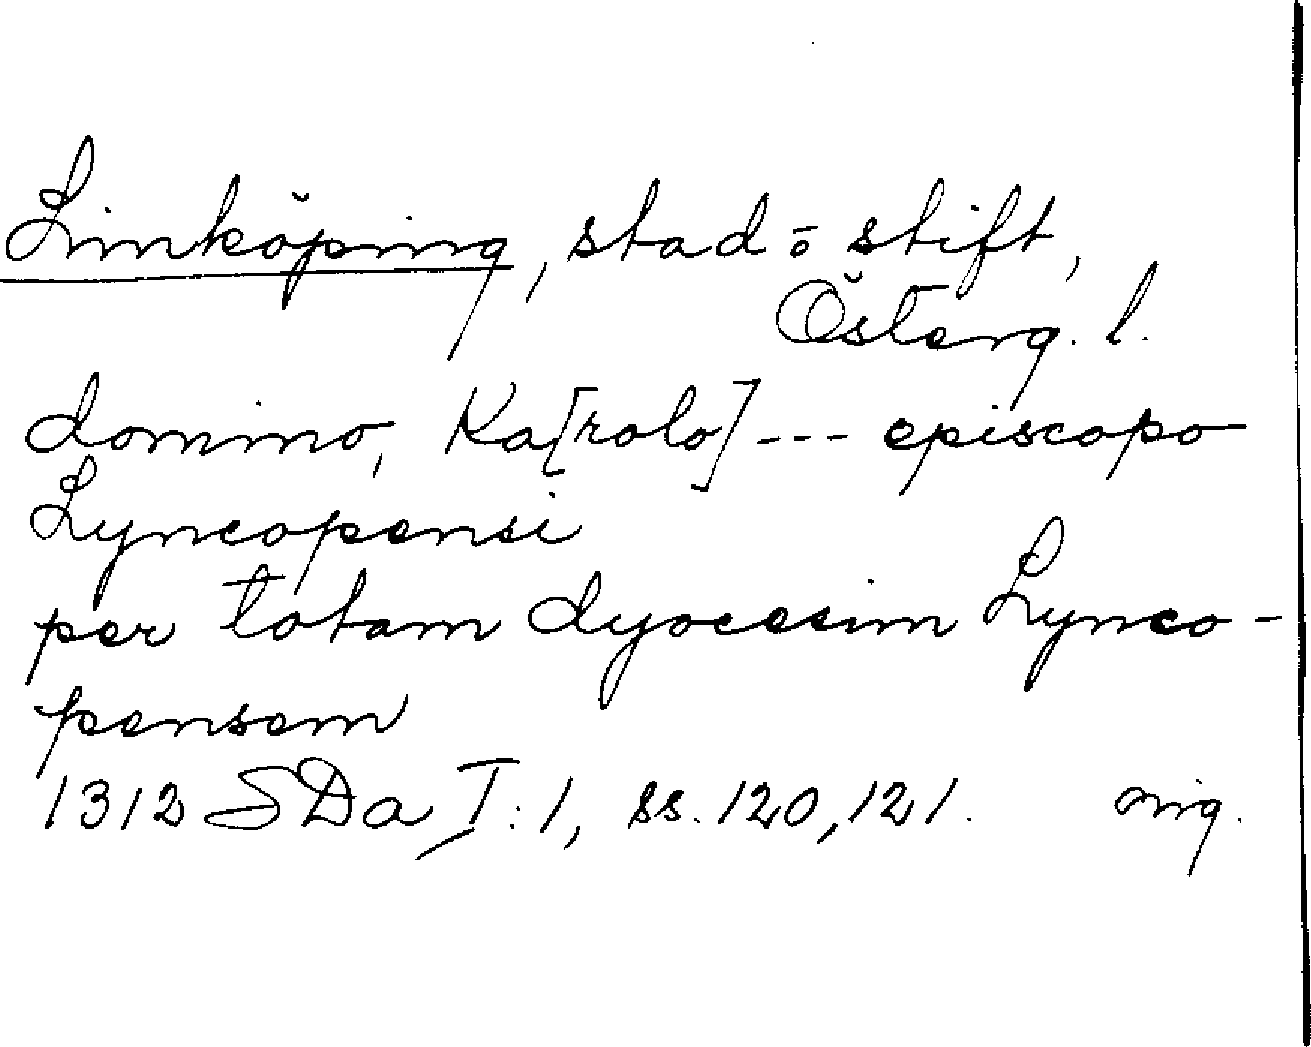 Linköping, stad o stift,
Österg. l.
domino, Ka[rolo] --- episcopo
Lyncopensi
per totam dyocesim Lynco-
pensem
1312 SDa I:1, ss. 120, 121. orig.